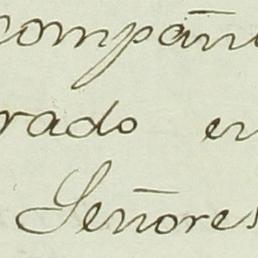 compañ
rado en
Señores